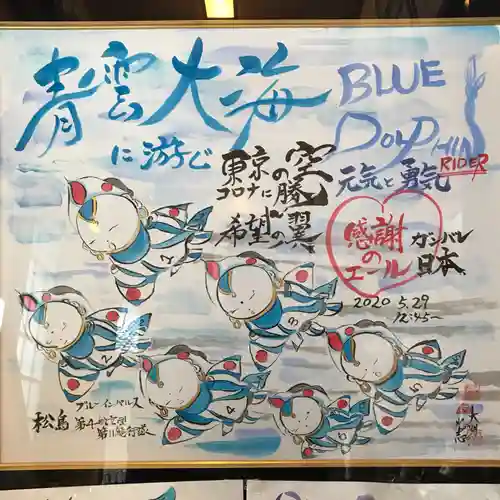 青雲大海
に游ぶ
BLUE
DOLPHINS
RIDER
東京の空
コロナに勝〜
希望の翼
元気と勇気
感謝
の
エール
ガンバレ
日本
2020 5.29
12:45〜
ブルーインパルス
松島 第4航空団
第11飛行隊